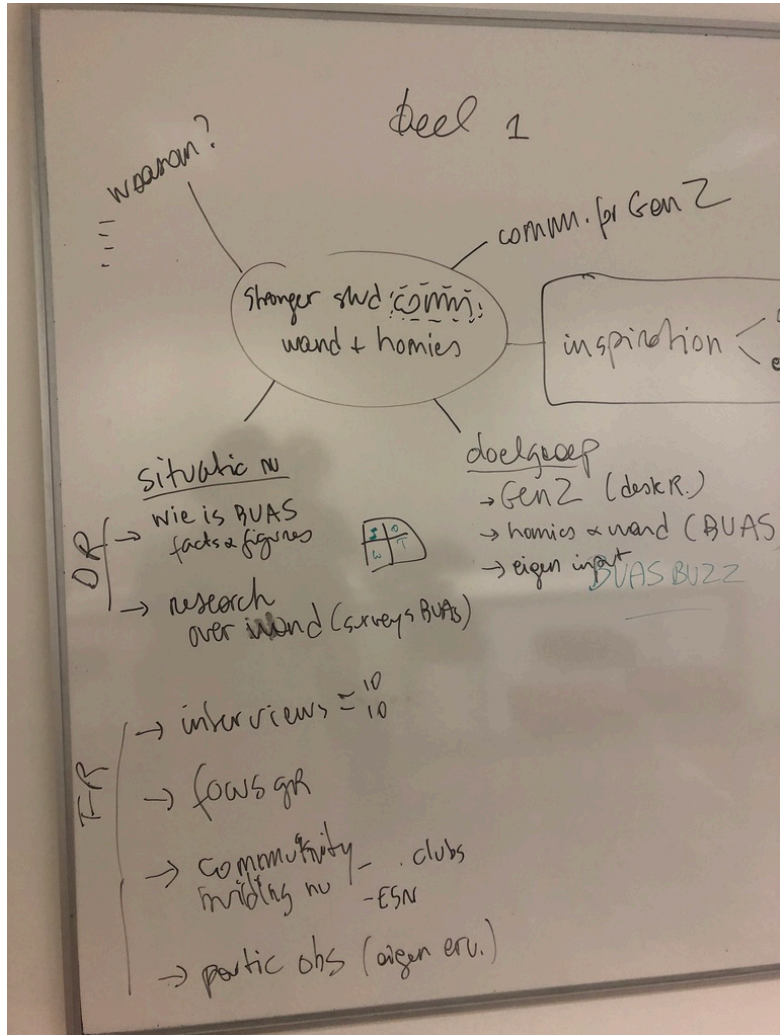 Deel 1
waarom?
comm. for Gen Z
stronger stud comm.
wand + homies
inspiration
situatie nu
doelgroep
DR
→ wie is BUAS
facts & figures
S O
W T
→ research
over wand (surveys BUAS)
→ Gen Z (desk R.)
→ homies & wand (BUAS
→ eigen input
BUAS BUZZ
FR
→ interviews = 10
10
→ focus gR
→ community - . clubs
building nu - ESN
→ partic obs (eigen erv.)